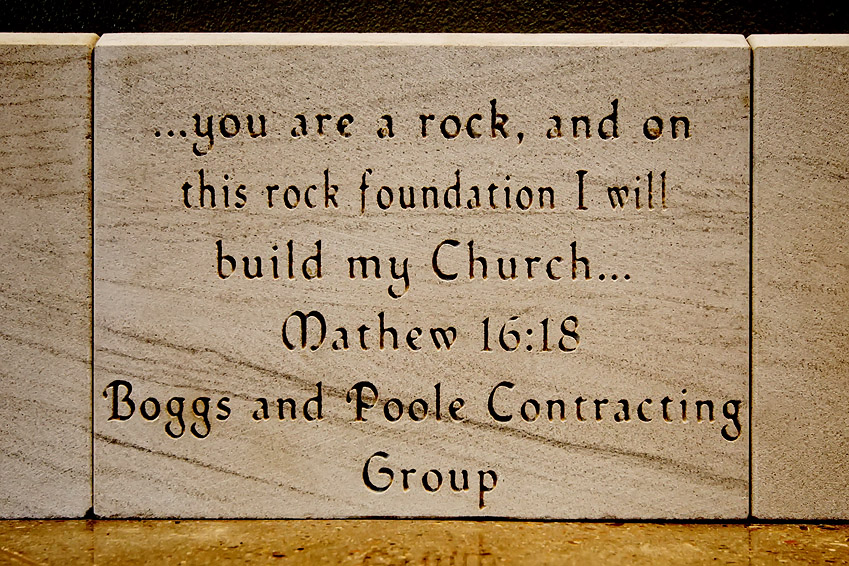 ...you are a rock, and on
this rock foundation I will
build my Church...
Mathew 16:18
Boggs and Poole Contracting
Group